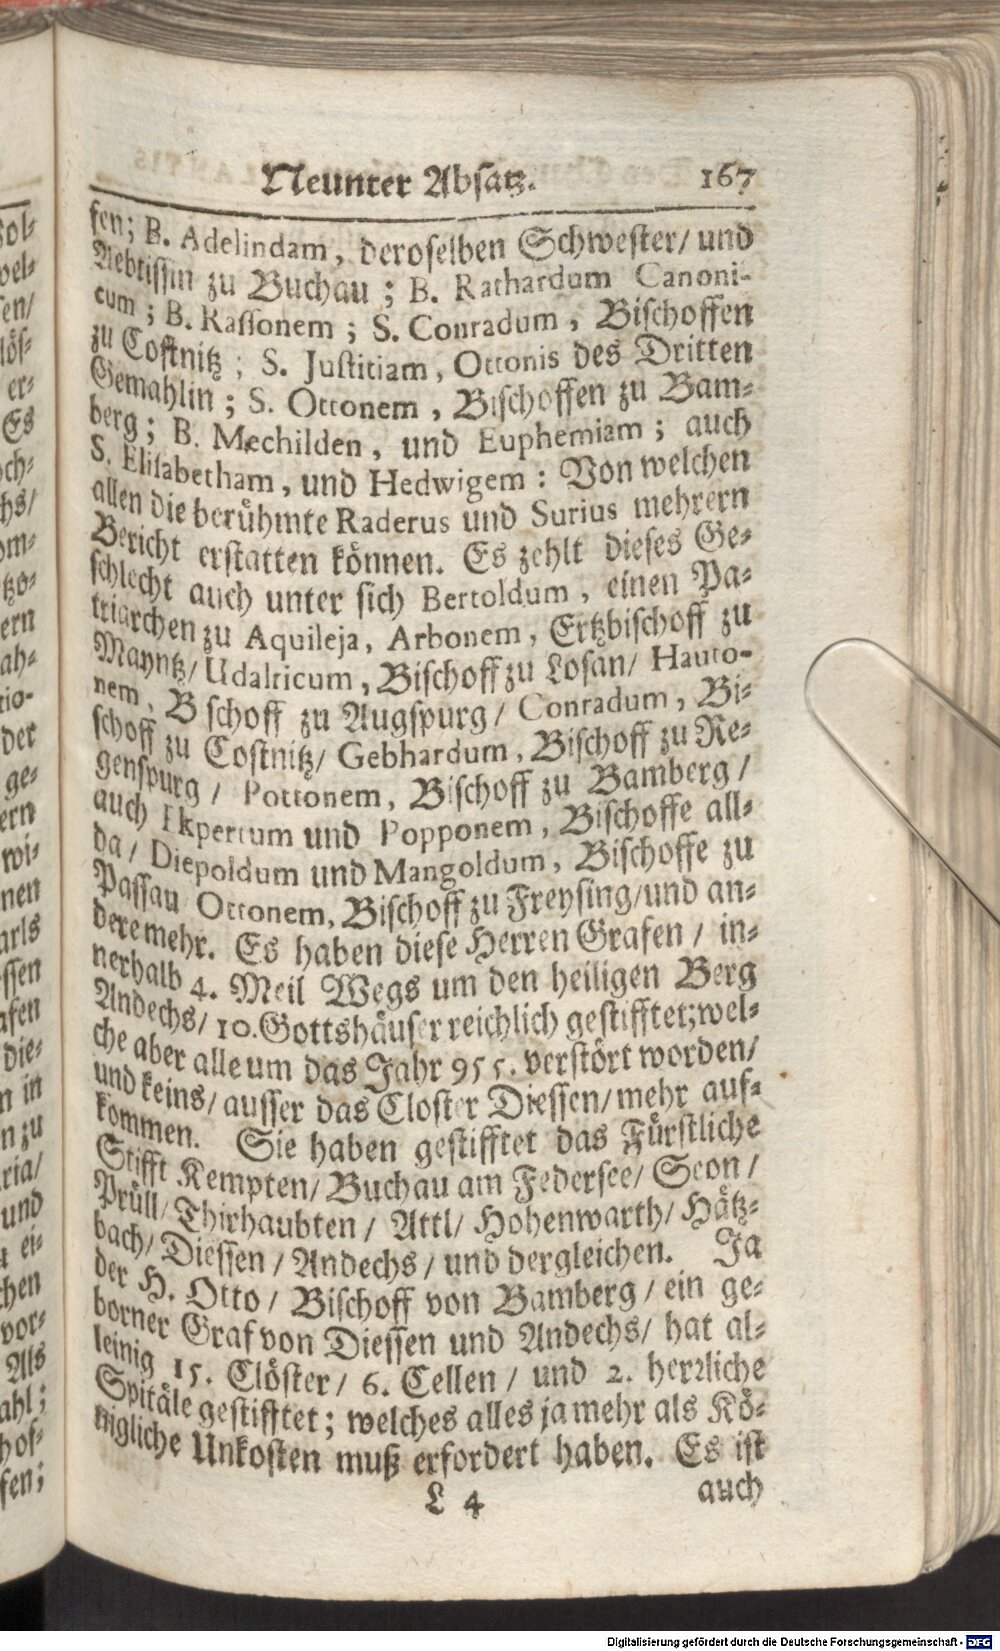 Neunter Absatz. 167
sen; B. Adelindam, deroselben Schwester/ und
Aebtissin zu Buchau; B. Rathardum Canoni-
cum; B. Rassonem; S. Conradum, Bischoffen
zu Costnitz; S. Justitiam, Ottonis des Dritten
Gemahlin; S. Ottonem, Bischoffen zu Bam-
berg; B. Mechilden, und Euphemiam; auch
S. Elisabetham, und Hedwigem: Von welchen
allen die berühmte Raderus und Surius mehrern
Bericht erstatten können. Es zehlt dieses Ge-
schlecht auch unter sich Bertoldum, einen Pa-
triarchen zu Aquileja, Arbonem, Ertzbischoff zu
Mayntz/ Udalricum, Bischoff zu Losan/ Hauto-
nem, Bischoff zu Augspurg/ Conradum, Bi-
schoff zu Costnitz/ Gebhardum, Bischoff zu Re-
genspurg/ Pottonem, Bischoff zu Bamberg/
auch Ekpertum und Popponem, Bischoffe all-
da/ Diepoldum und Mangoldum, Bischoffe zu
Passau Ottonem, Bischoff zu Freysing/ und an-
dere mehr. Es haben diese Herren Grafen/ in-
nerhalb 4. Meil Wegs um den heiligen Berg
Andechs/ 10. Gottshäuser reichlich gestifftet; wel-
che aber alle um das Jahr 955. verstört worden/
und keins/ ausser das Closter Diessen/ mehr auf-
kommen. Sie haben gestifftet das Fürstliche
Stifft Kempten/ Buchau am Federsee/ Seon/
Prüll/ Thirhaubten/ Attl/ Hohenwarth/ Hätz-
bach/ Diessen/ Andechs/ und dergleichen. Ja
der H. Otto/ Bischoff von Bamberg/ ein ge-
borner Graf von Diessen und Andechs/ hat al-
leinig 15. Clöster/ 6. Cellen/ und 2. herrliche
Spitäle gestifftet; welches alles ja mehr als Kö-
nigliche Unkosten muß erfordert haben. Es ist
L 4 auch
Digitalisierung gefördert durch die Deutsche Forschungsgemeinschaft - DFG